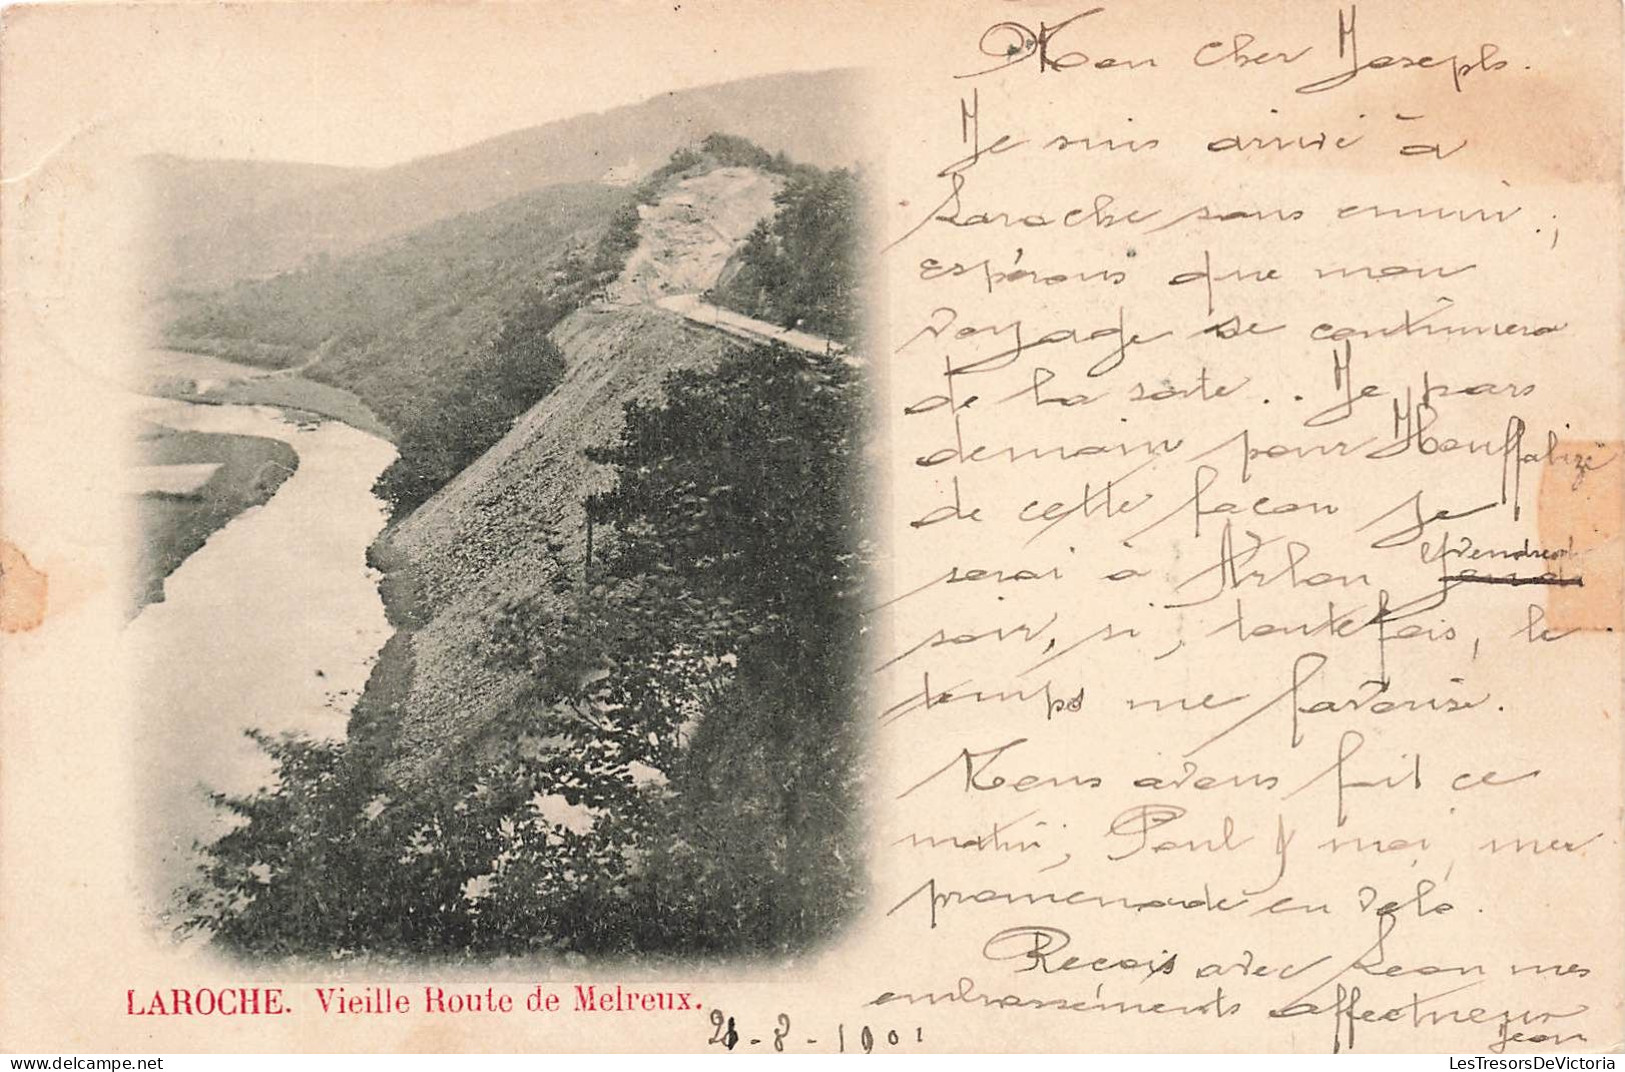 Mon cher Joseph.
Je suis arrivé à
Laroche sans ennui ;
espérons que mon
voyage se continuera
de la sorte.. Je pars
demain pour Houffalize
de cette façon je
serai à Arlon vendredi
soir, si, toutefois, le
temps me favorise.
Nous avons fait ce
matin, Paul & moi, une
promenade en vélo.
Reçois avec Léon mes
embrassements affectueux
Jean
LAROCHE. Vieille Route de Melreux.
21-8-1901
LesTresorsDeVictoria